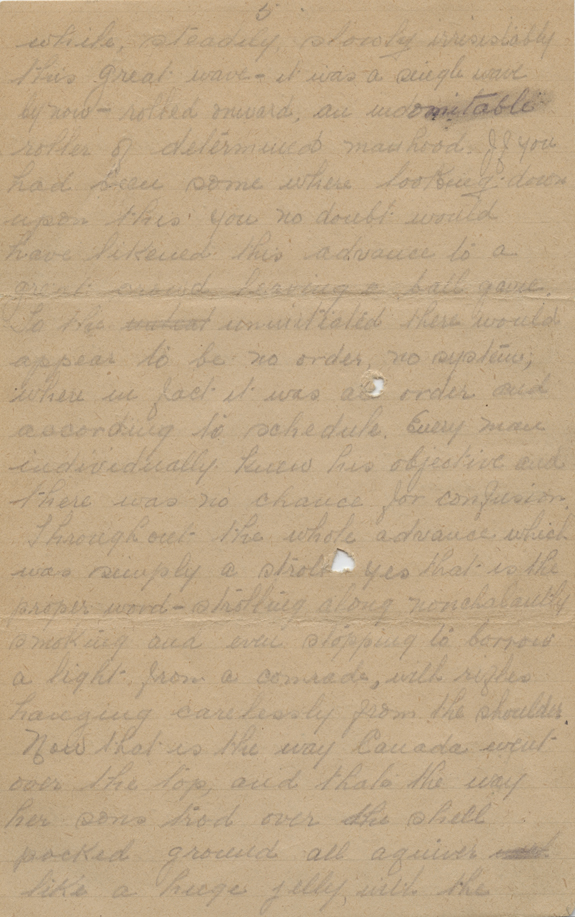 5
while, steadily, slowly irresistably
this great wave - it was a single wave
by now - rolled onward, an indomitable
roller of determined manhood. If you
had been some where looking down
upon this you no doubt would
have likened this advance to a
great crowd leaving a ball game.
To the uninitiated there would
appear to be no order, no system,
where in fact it was all order and
according to schedule. Every man
individually knew his objective and
there was no chance for confusion.
Throughout the whole advance which
was simply a stroll yes that is the
proper word - strolling along nonchalantly
smoking and even stopping to borrow
a light from a comrade, with rifles
hanging carelessly from the shoulder.
Now that is the way Canada went
over the top, and thats the way
her sons trod over the shell
pocked ground all aquiver
like a huge jelly with the